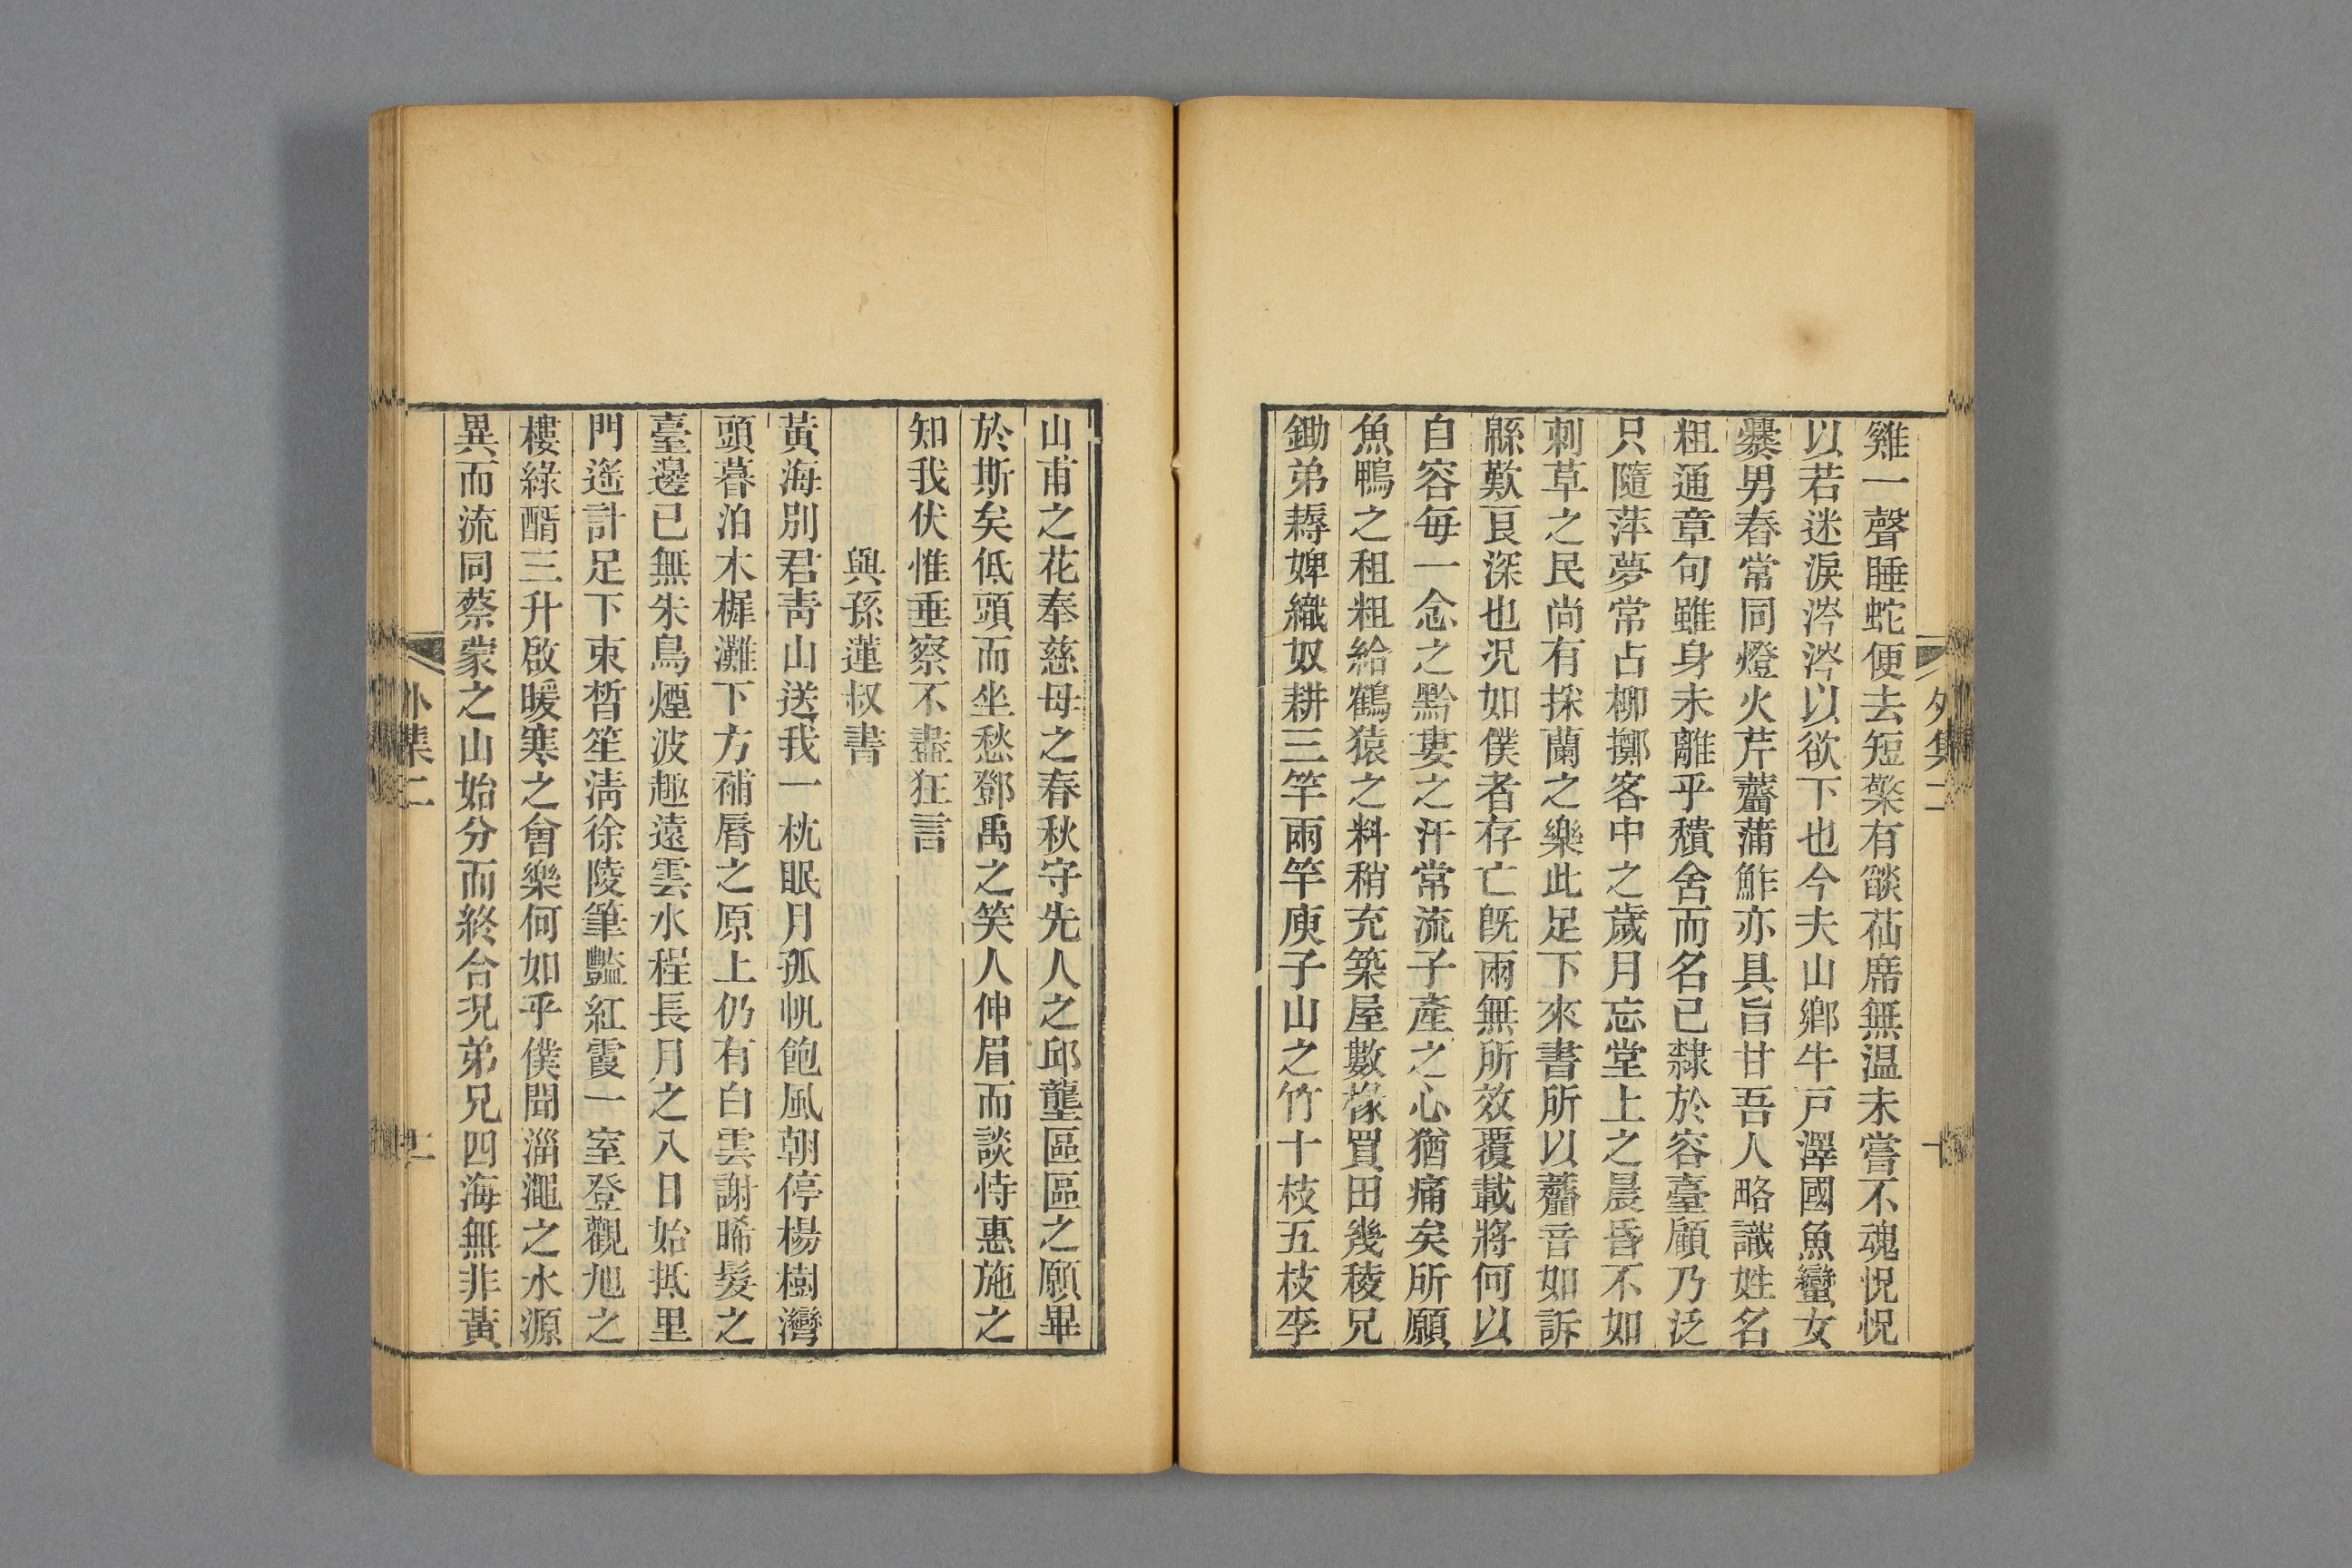 雞一聲睡蛇便去短檠有燄荈席無温未嘗不魂怳怳
以若迷淚涔涔以欲下也今夫山鄉牛戸澤國魚蠻女
爨男舂常同燈火芹虀蒲鮓亦具旨甘吾人略識姓名
粗通章句雖身未離乎穨舍而名已隸於容臺顧乃泛
只隨萍夢常占柳擲客中之歲月忘堂上之晨昏不如
刺草之民尚有採蘭之樂此足下來書所以虀音如訴
緜歎艮深也況如僕者存亡旣兩無所效覆載將何以
自容每一念之黔婁之汗常流子產之心猶痛矣所願
魚鴨之租粗給鶴猿之料稍充築屋數椽買田幾稜兄
鋤弟耨婢織奴耕三竿兩竿庾子山之竹十枝五枝李
外集二
十
山甫之花奉慈母之春秋守先人之邱壟區區之願畢
於斯矣低頭而坐愁鄧禹之笑人伸眉而談恃惠施之
知我伏惟垂察不盡狂言
與孫蓮叔書
黃海別君靑山送我一枕眠月孤帆飽風朝停楊樹灣
頭暮泊木樨灘下方補脣之原上仍有白雲謝晞髮之
臺邊已無朱鳥煙波趣遠雲水程長月之八日始抵里
門遙計足下束皙笙淸徐陵筆豔紅霞一室登觀旭之
樓綠醑三升啟暖寒之會樂何如乎僕聞淄澠之水源
異而流同蔡蒙之山始分而終合況弟兄四海無非黃
外集二